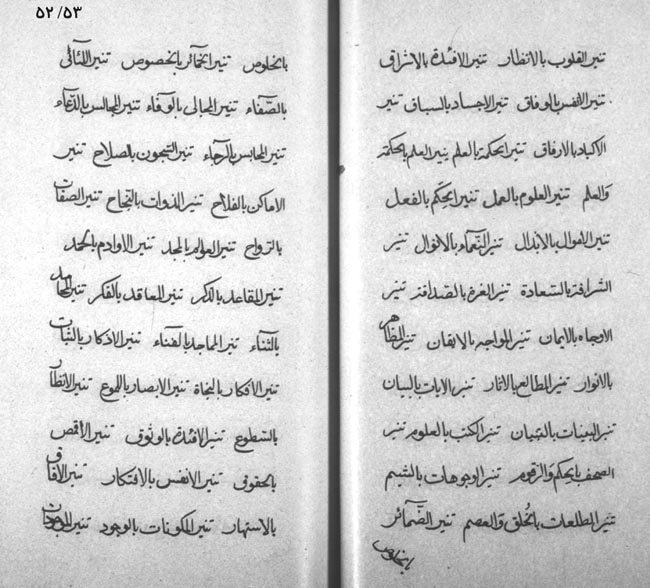 ٥٢/٥٣
تنير القلوب بالانظار تنير الافئدة بالاشراق
تنير النفس بالوفاق تنير الاجساد بالسباق تنير
الاكباد بالارفاق تنير الحكمة بالعلم ينير العلم بالحكمة
والعلم تنير العلوم بالعمل تنير الحكم بالفعل
تنير الاموال بالابذال تنير النعماء بالانوال تنير
الشرافة بالسعادة تنير الغرة بالصداقة تنير
الاوجاه بالايمان تنير المواجه بالايقان تنير المظاهر
بالانوار تنير المطالع بالاثار تنير الايات بالبيان
تنير البينات بالتبيان تنير الكتب بالعلوم تنير
الصحف بالحكم والرقوم تنير الوجوهات بالشيم
تنير المطلعات بالخلق والعصم تنير الضمائر
بالخلوص
بالخلوص تنير الخمائر بالخصوص تنير اللئالى
بالصفاء تنير المجالى بالوفاء تنير المجالس بالدعاء
تنير المحابس بالرجاء تنير السجون بالصلاح تنير
الاماكن بالفلاح تنير الذوات بالنجاح تنير الصفات
بالرواح تنير العوالم بالمجد تنير الاوادم بالحمد
تنير المقاعد بالذكر تنير المعاقد بالفكر تنير المحامد
بالثناء تنير المماجد بالفناء تنير الاذكار بالثبات
تنير الافكار بالنجاة تنير الابصار باللموع تنير الانظار
بالسطوع تنير الافئدة بالوثوق تنير الاقمص
بالحقوق تنير الانفس بالافتكار تنير الافاق
بالاستهار تنير المكونات بالوجود تنير الموجودات